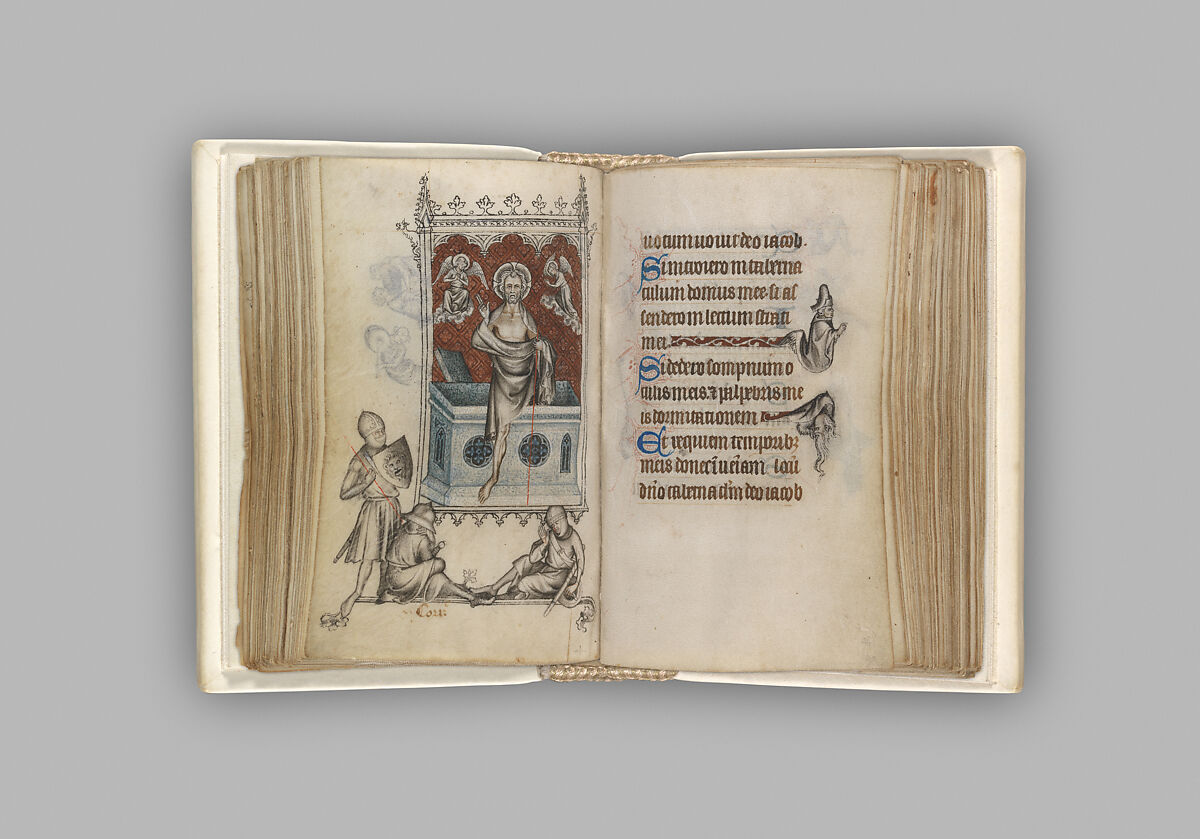 Cort
uotum uouit deo iacob.
Si introiero in taberna
culum domus mee. si as
sendero in lectum strati
mei
Si dedero sompnum o
culis meis. et palpebris me
is dormitationem
Et requiem temporibz
meis donec inueniam locū
dn̄o tabernaclm deo iacob